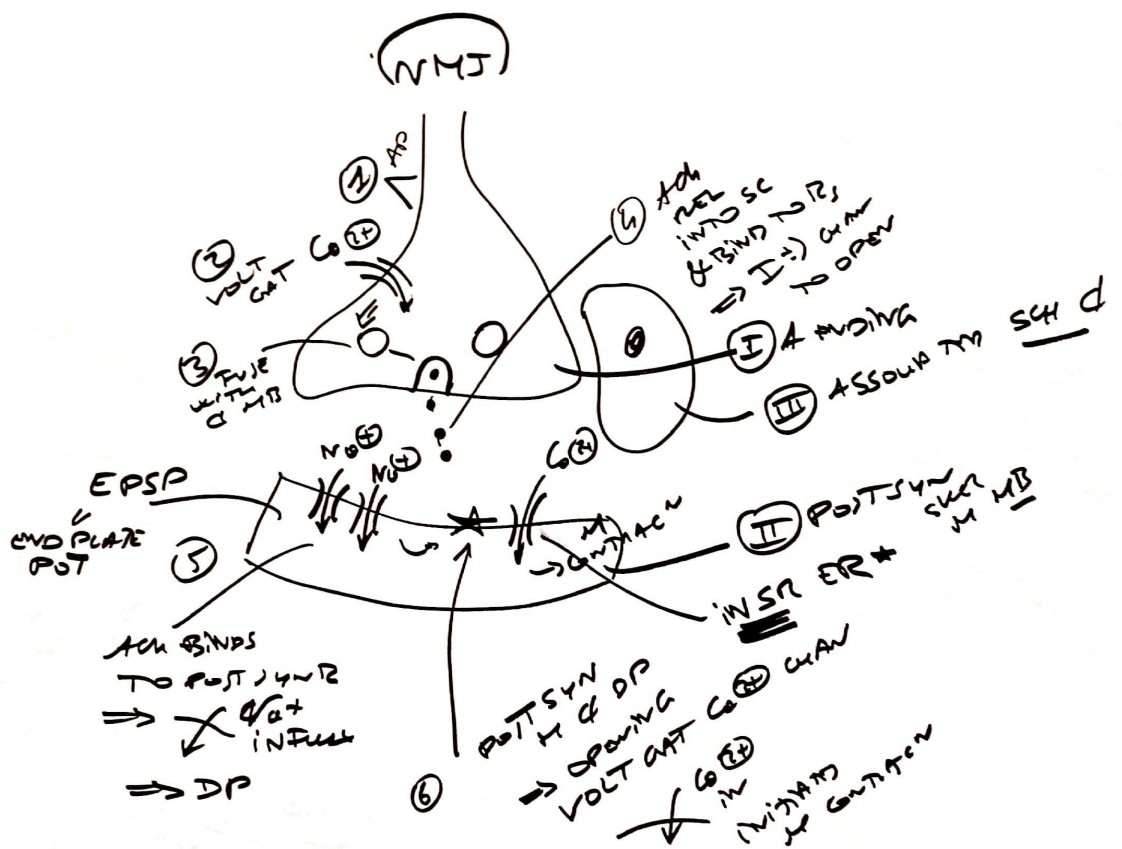 NMJ
① AP
② VOLT
GAT
Ca 2+
③ FUSE
WITH
C MB
④ ACh
REL
INTO SC
& BIND TO Rs
⇒ I :) CHAN
TO OPEN
Ⅰ A ENDING
Ⅲ ASSOCIATED SCH C
Na +
Na +
Ca 2+
EPSP
END PLATE
POT
⑤
Ⅱ POSTSYN
M MB
→ CONTRAC N
IN SR ER*
ACh BINDS
TO POSTSYN R
⇒ Na+
INFLUX
⇒ DP
⑥ POSTSYN
M C DP
→ OPENING
VOLT GAT Ca 2+ CHAN
Ca 2+
IN
M CONTRAC N